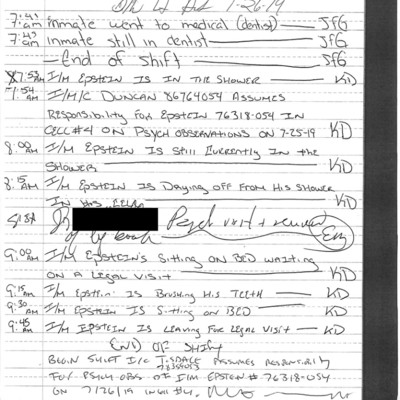 7-26-19
7:41 am inmate went to medical (dentist) JFG
7:43 am inmate still in dentist JFG
End of shift JFG
7:53 am I/M EPSTEIN IS IN THE SHOWER KD
7:54 am I/M/C DUNCAN 86764054 ASSUMES
RESPONSIBILITY FOR EPSTEIN 76318-054 IN
CELL #4 ON PSYCH OBSERVATIONS ON 7-25-19 KD
8:00 am I/M EPSTEIN IS STILL CURRENTLY IN THE
SHOWER KD
8:15 am I/M EPSTEIN IS DRYING OFF FROM HIS SHOWER
IN HIS CELL KD
Psych visit +
9:00 am I/M EPSTEIN'S SITTING ON BED WAITING
ON A LEGAL VISIT KD
9:15 am I/M EPSTEIN IS BRUSHING HIS TEETH KD
9:30 am I/M EPSTEIN IS SITTING ON BED KD
9:45 am I/M EPSTEIN IS LEAVING FOR LEGAL VISIT KD
END OF SHIFT
BEGIN SHIFT I/C ASSUMES RESPONSIBILITY
FOR PSYCH OBS OF I/M EPSTEIN # 76318-054
ON 7/26/19 IN #4.